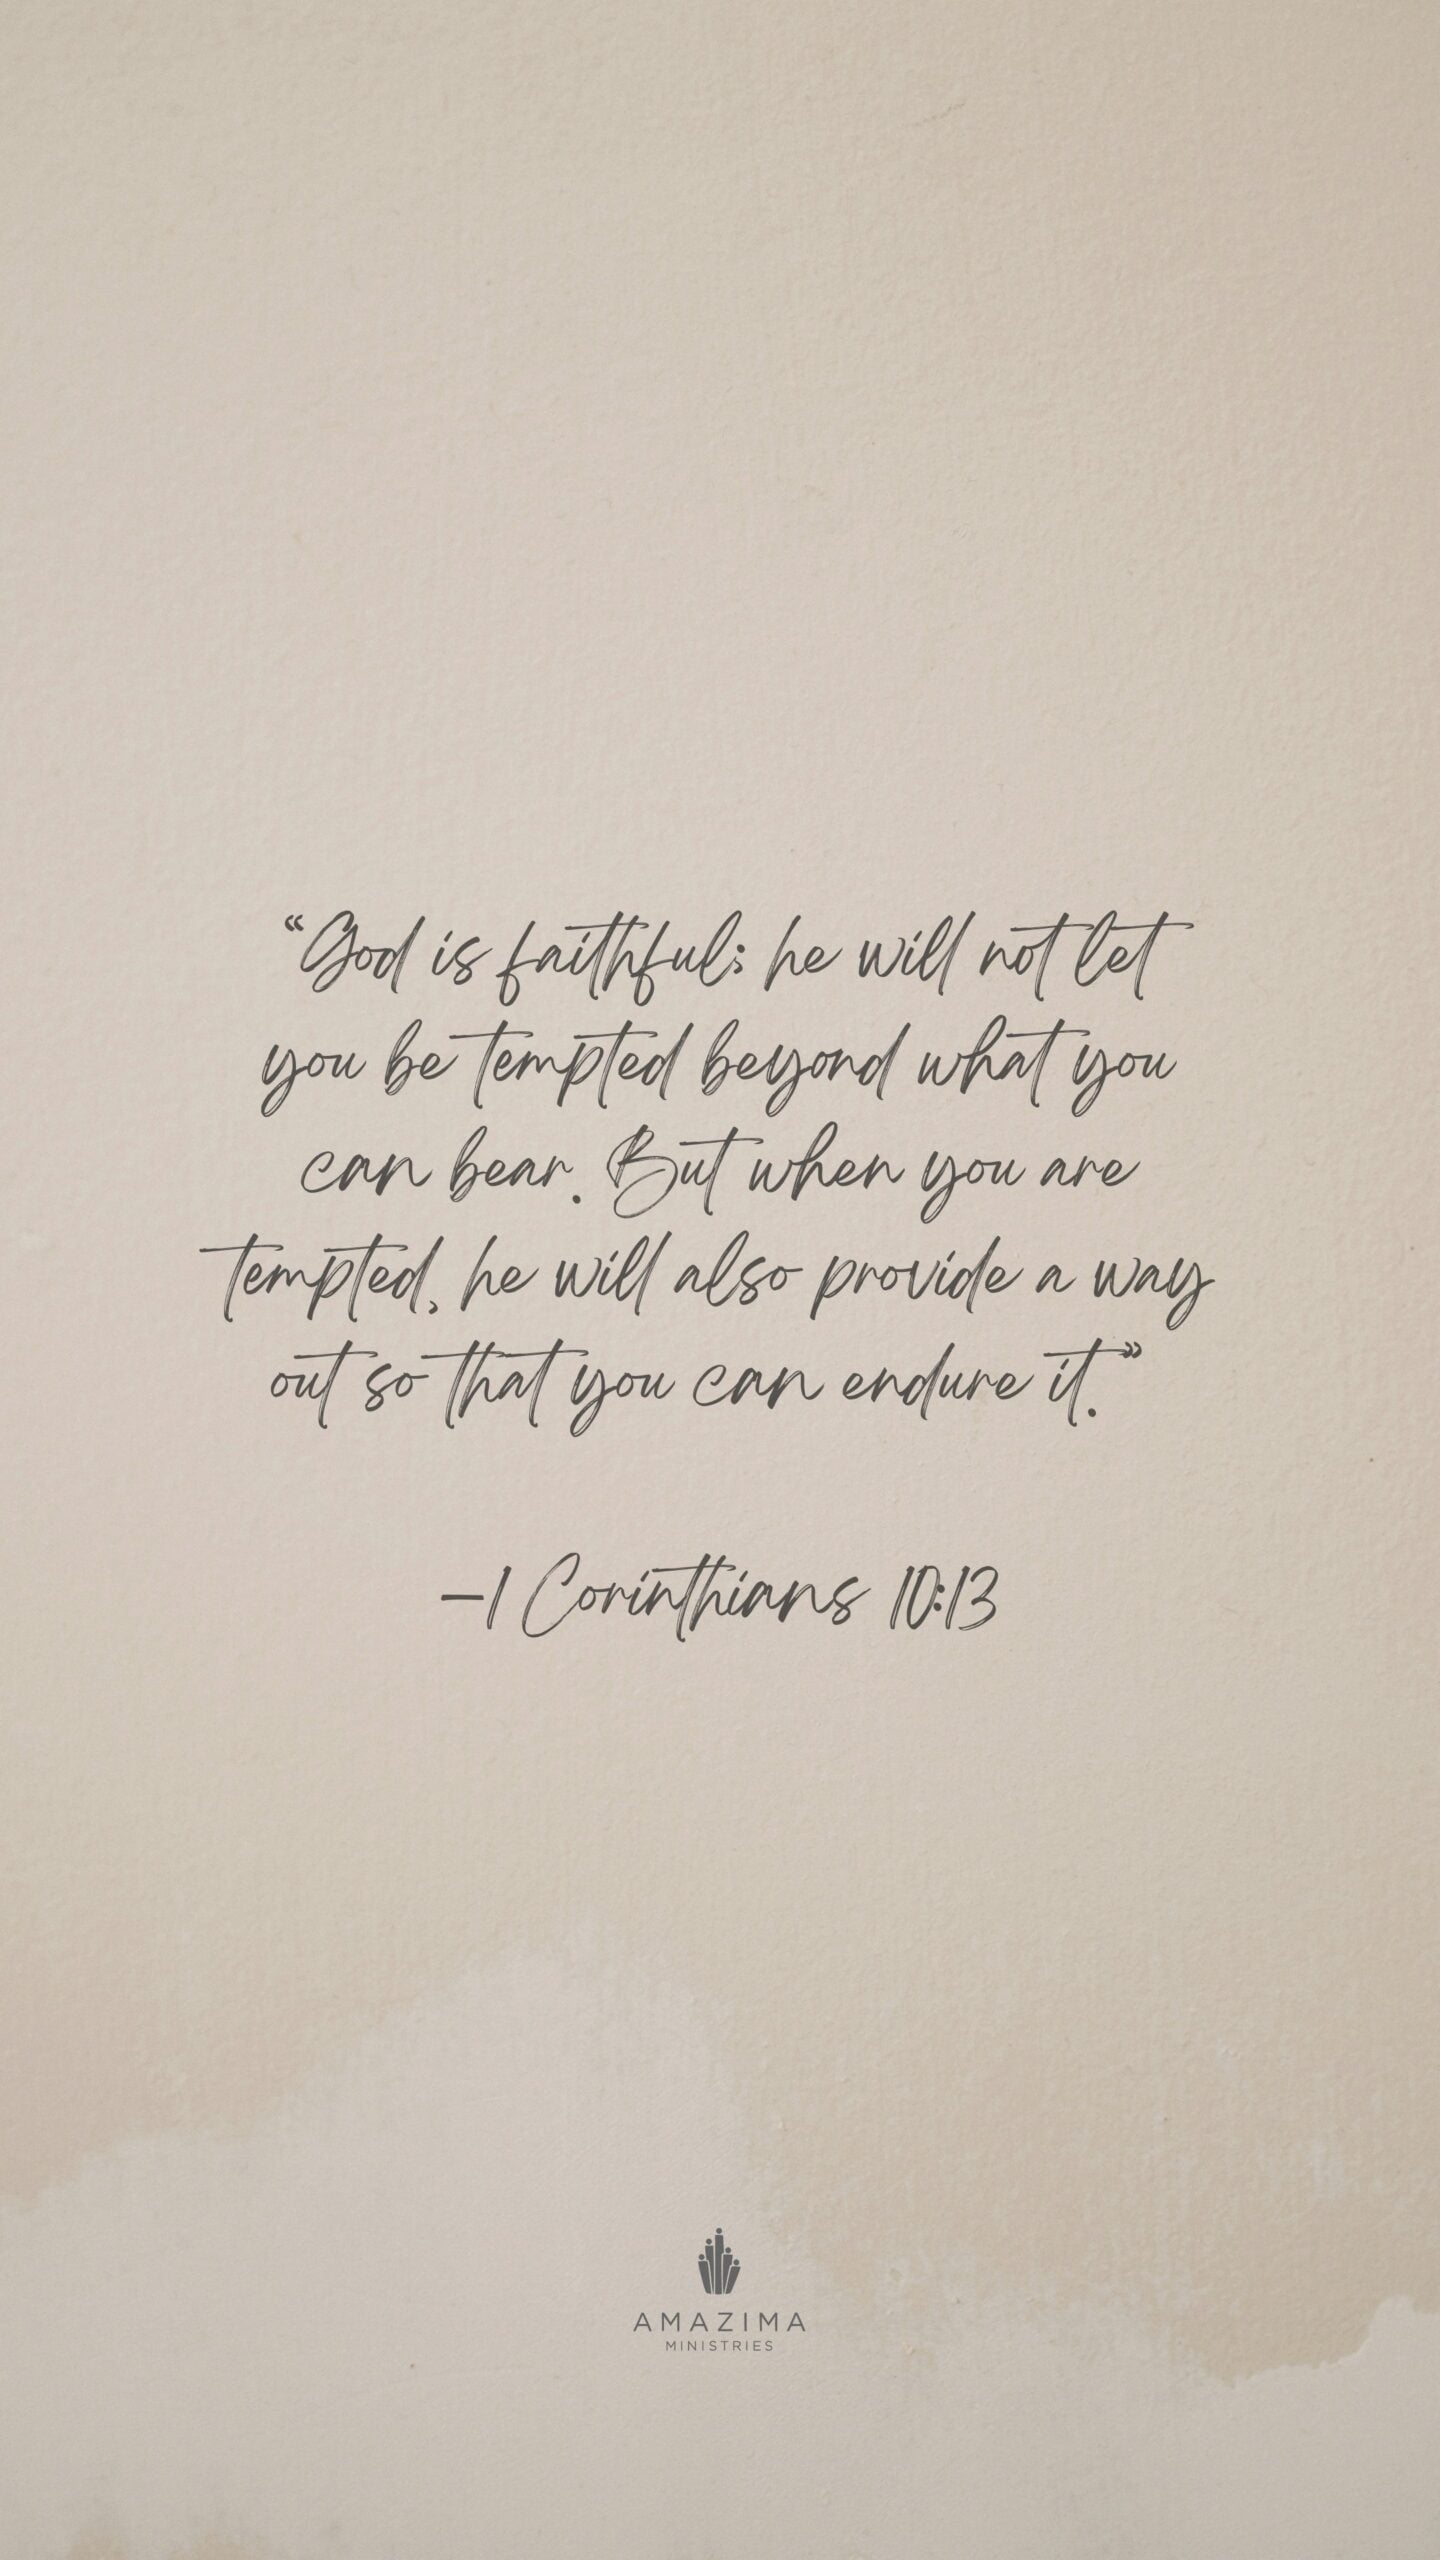 “God is faithful; he will not let
you be tempted beyond what you
can bear. But when you are
tempted, he will also provide a way
out so that you can endure it.”
–1 Corinthians 10:13
AMAZIMA
MINISTRIES